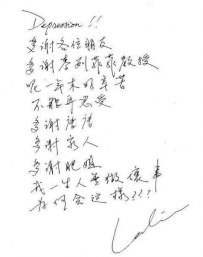 Depression !!
多謝各位朋友
多謝麥列菲菲教授
呢一年來的辛苦
不能再忍受
多謝唐唐
多謝家人
多謝肥姐
我一生人無做壞事
為何會這樣???
Leslie